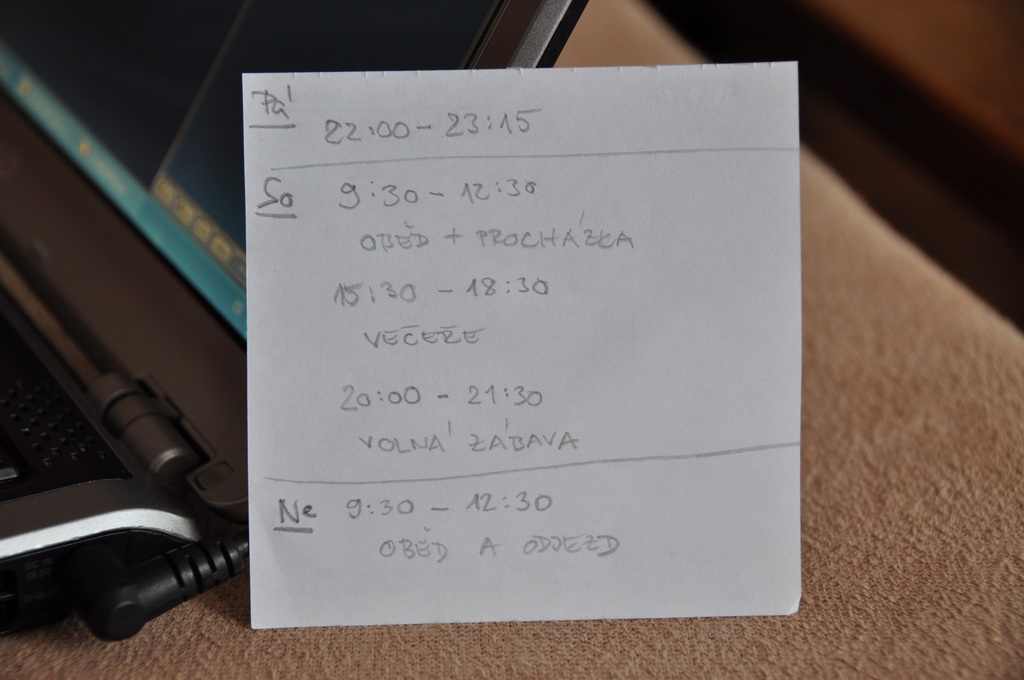 Pá
22:00 - 23:15
So 9:30 - 12:30
OBĚD + PROCHÁZKA
15:30 - 18:30
VEČEŘE
20:00 - 21:30
VOLNÁ ZÁBAVA
Ne 9:30 - 12:30
OBĚD A ODJEZD